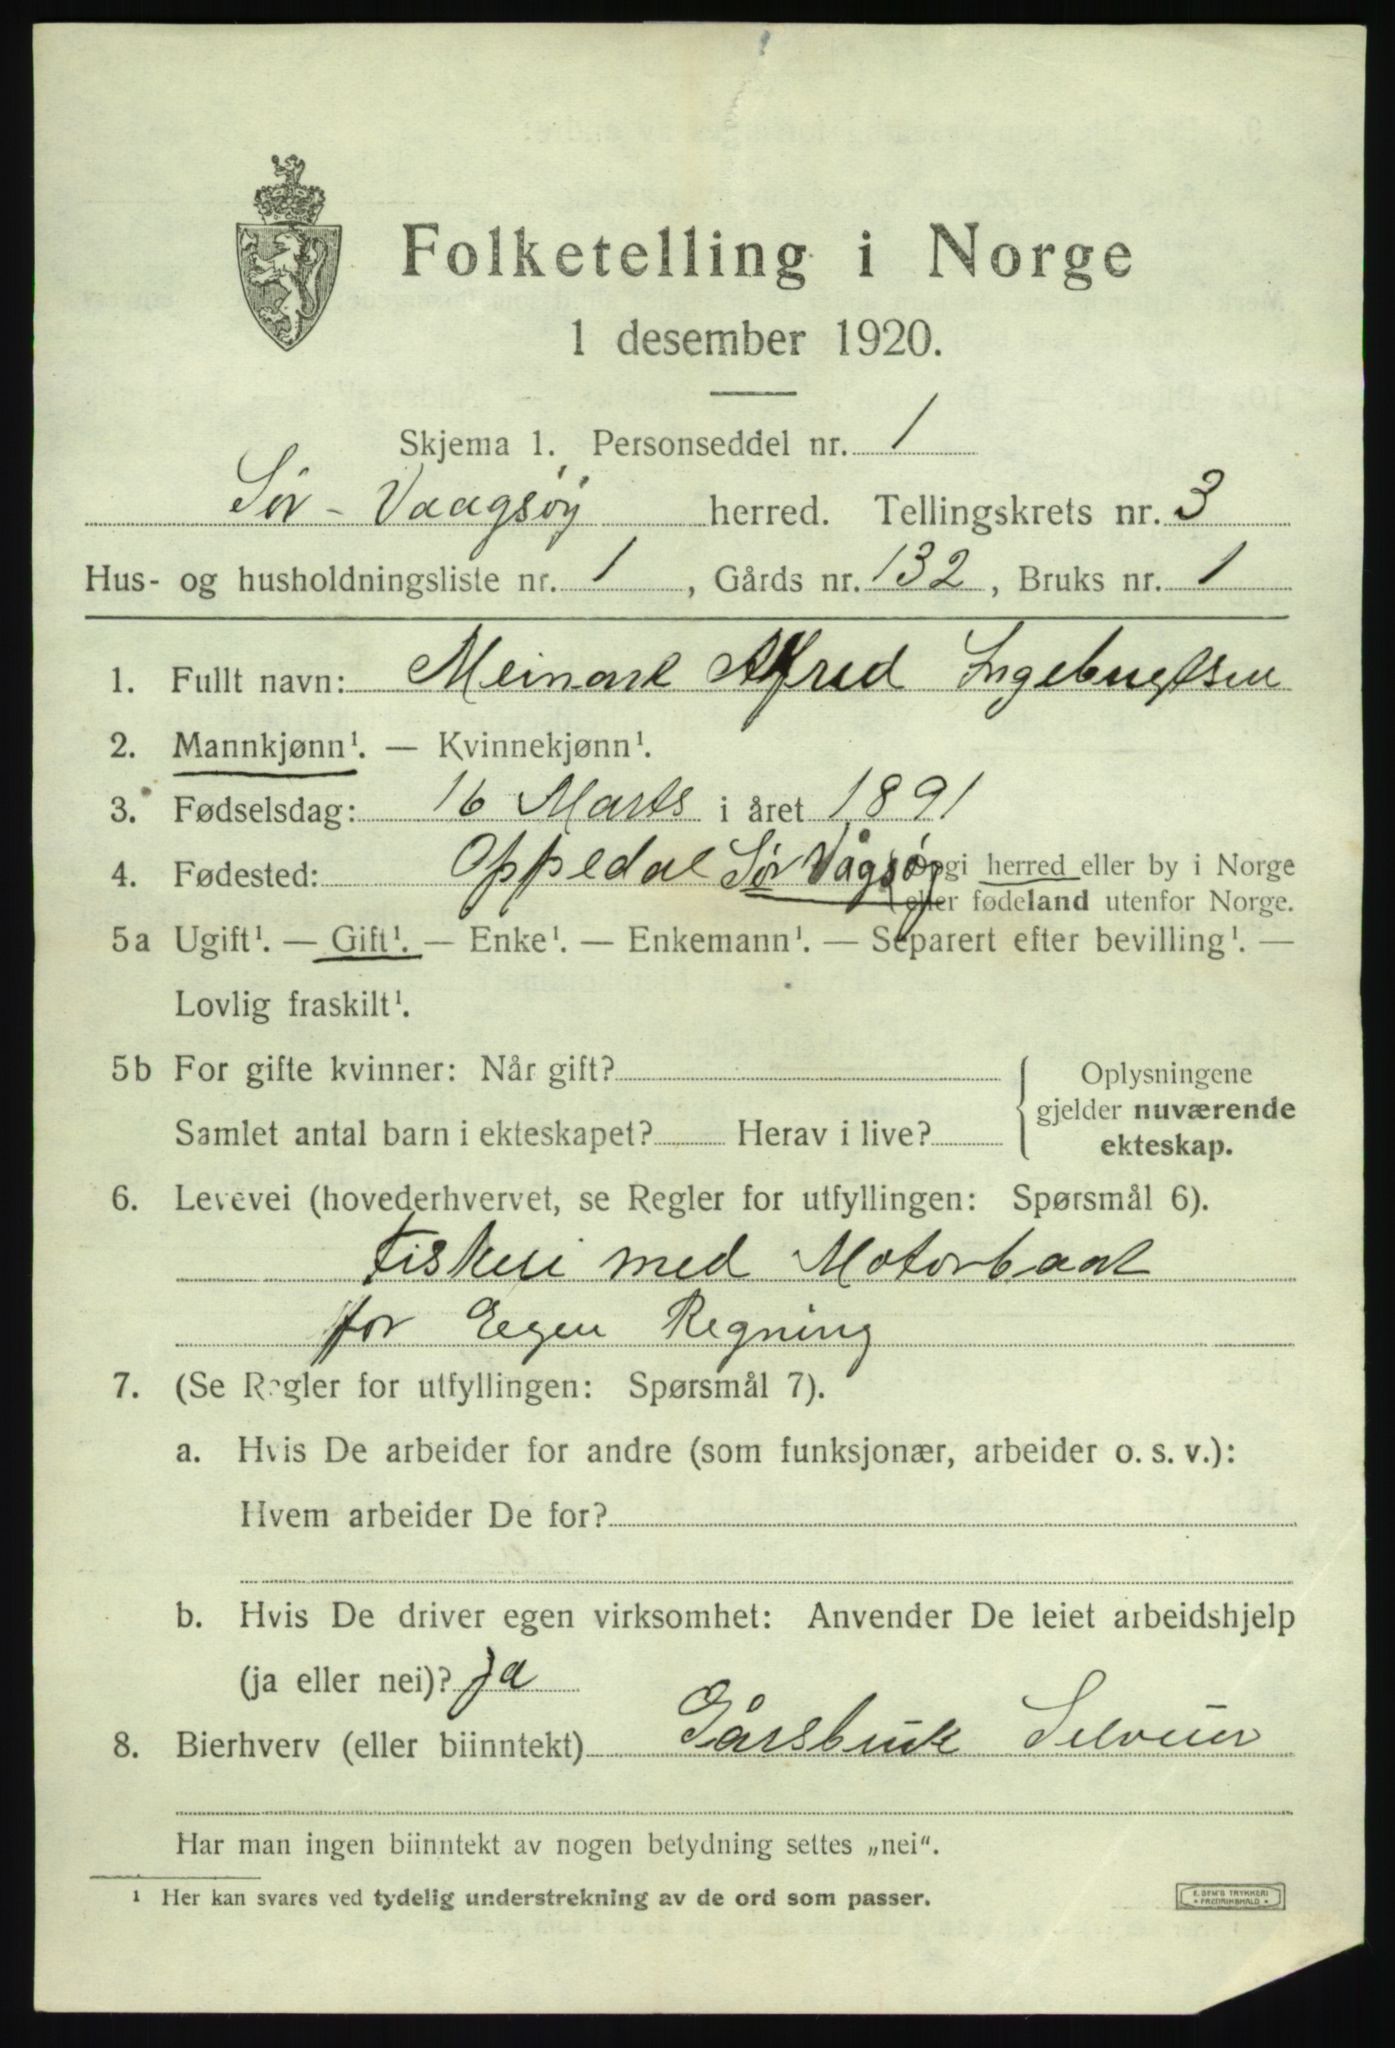 Folketelling i Norge
1 desember 1920.
Skjema 1. Personseddel nr. 1
Sør-Vaagsøy herred. Tellingskrets nr. 3
Hus- og husholdningsliste nr. 1, Gårds nr. 132, Bruks nr. 1
1. Fullt navn: Meinart Alfred Ingebrigtsen
2. Mannkjønn¹. — Kvinnekjønn¹.
3. Fødselsdag: 16 Marts i året 1891
4. Fødested: Oppedal Sør Vågsøy (Opgi herred eller by i Norge
eller fødeland utenfor Norge.
5a Ugift¹. — Gift¹. — Enke¹. — Enkemann¹. — Separert efter bevilling¹. —
Lovlig fraskilt¹.
5b For gifte kvinner: Når gift?
Samlet antal barn i ekteskapet? Herav i live?
Oplysningene
gjelder nuværende
ekteskap.
6. Levevei (hovederhvervet, se Regler for utfyllingen: Spørsmål 6).
Fiskeri med Motorbaat
for Eegen Regning
7. (Se Regler for utfyllingen: Spørsmål 7).
a. Hvis De arbeider for andre (som funksjonær, arbeider o. s. v.):
Hvem arbeider De for?
b. Hvis De driver egen virksomhet: Anvender De leiet arbeidshjelp
(ja eller nei)? Ja
8. Bierhverv (eller biinntekt) Gårsbruk Selveier
Har man ingen biinntekt av nogen betydning settes „nei“.
¹ Her kan svares ved tydelig understrekning av de ord som passer.
E. SEM'S TRYKKERI
FREDRIKSHALD